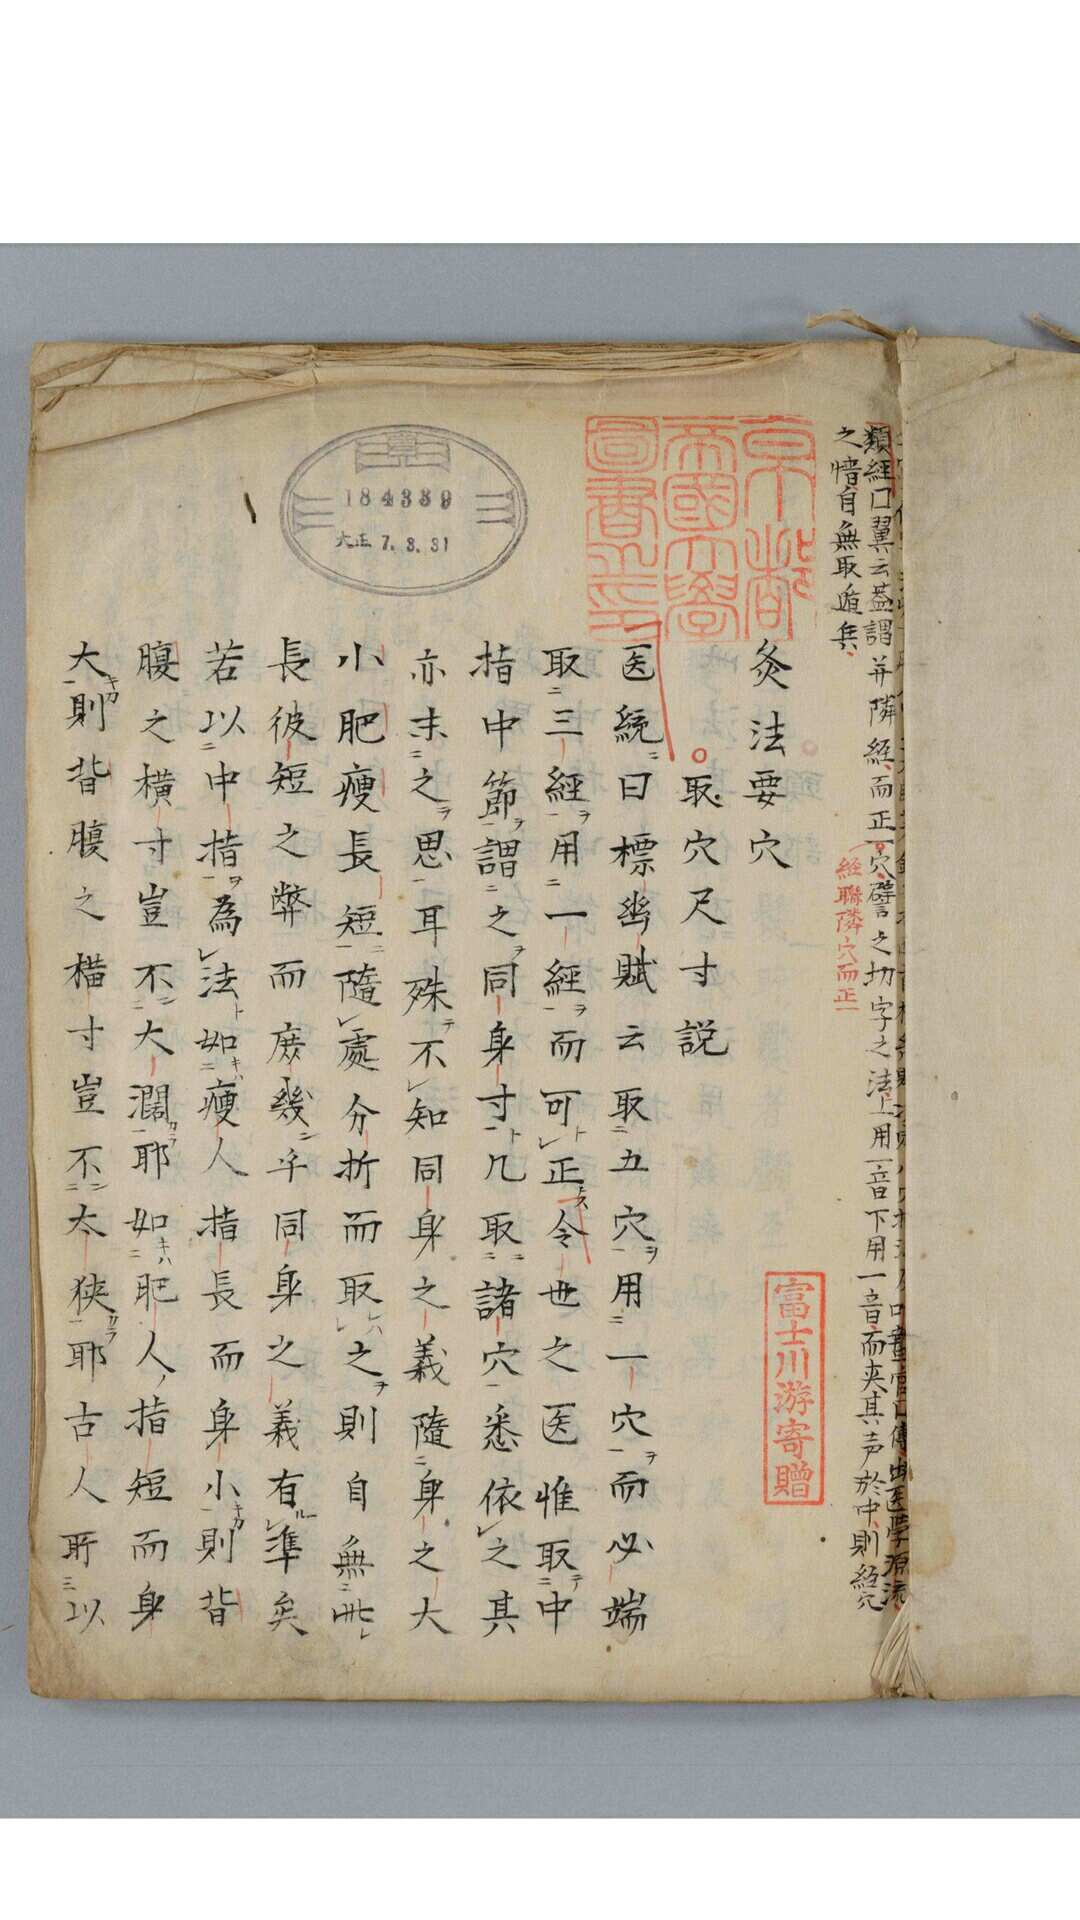 類經口翼云蓋謂并隣經而正一穴譬之切字之法上用一音下用一音而夾其声於中則経穴
之情自無取遁矣
経聯隣穴而正一
京都
帝國大學
圖書之印
灸法要穴
取穴尺寸説
医統曰標幽賦云取五穴用一穴而必端
取三經用一經而可正今世之医惟取中
指中節謂之同身寸凡取諸穴悉依之其
亦未之思耳殊不知同身之義隨身之大
小肥瘦長短隨處分折而取之則自無此
長彼短之弊而庶幾乎同身之義有準矣
若以中指為法如瘦人指長而身小則背
腹之横寸豈不大濶耶如肥人指短而身
大則背腹之横寸豈不太狹耶古人所以
富士川游寄贈
184389
大正 7. 3. 31